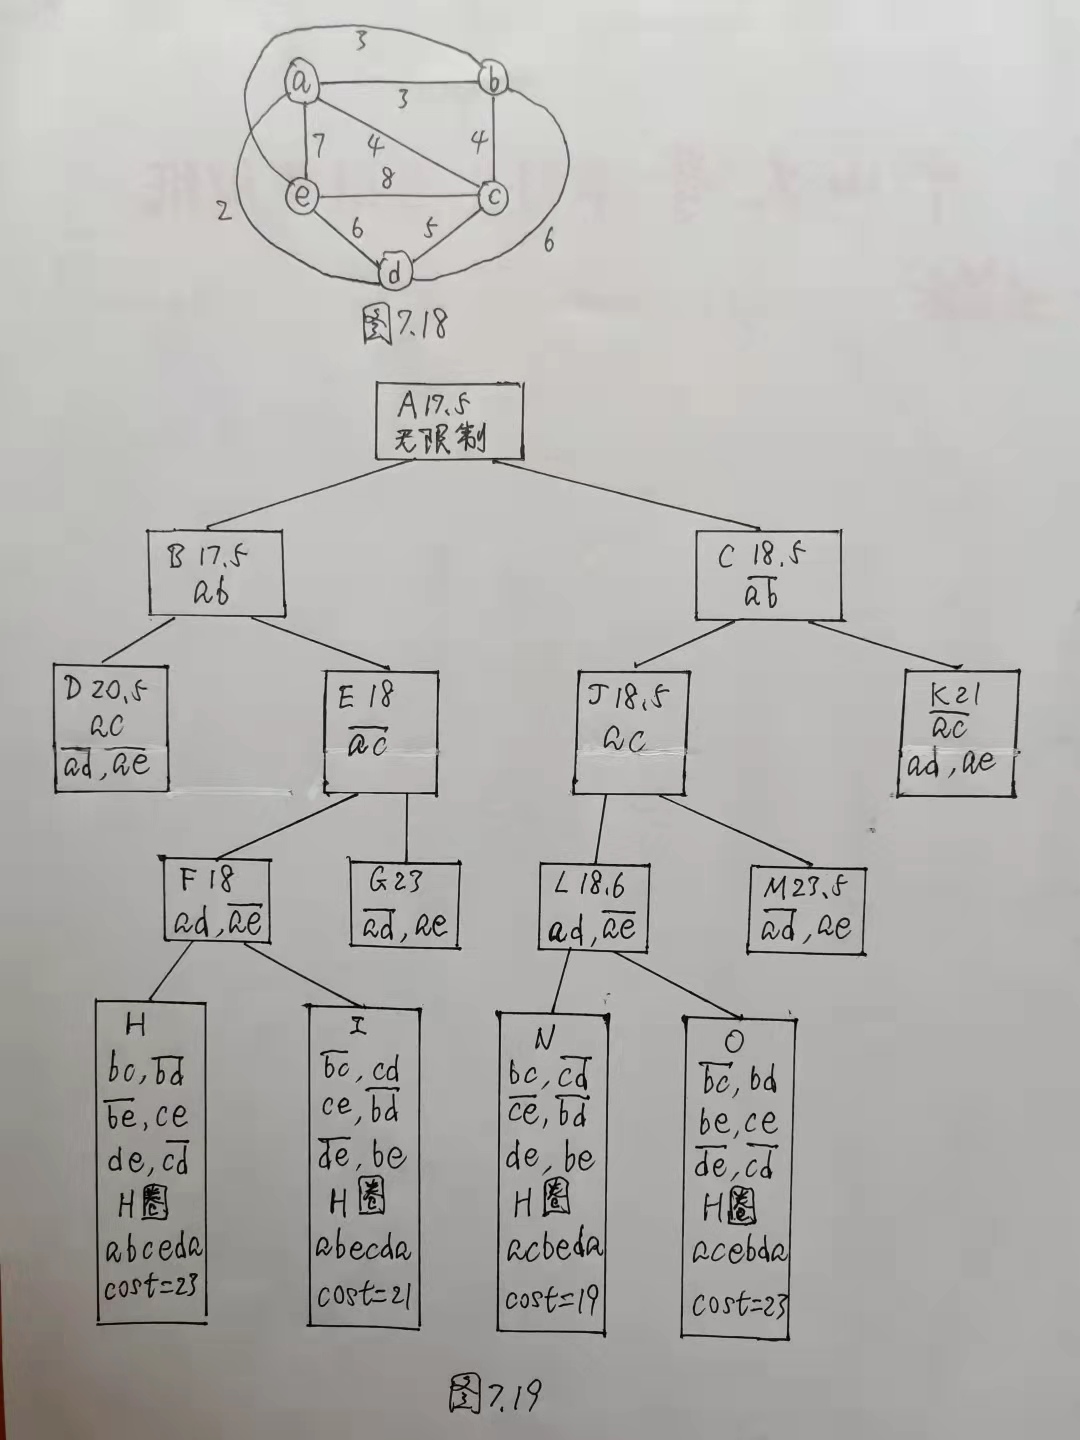 3
a
b
3
7
4
4
8
e
c
2
6
5
6
d
图7.18
A 17.5
无限制
B 17.5
ab
C 18.5
a̅b̅
D 20.5
ac
a̅d̅, a̅e̅
E 18
a̅c̅
J 18.5
ac
K 21
a̅c̅
ad, ae
F 18
ad, a̅e̅
G 23
a̅d̅, ae
L 18.6
ad, a̅e̅
M 23.5
a̅d̅, ae
H
bc, b̅d̅
b̅e̅, ce
de, c̅d̅
H圈
abceda
cost=23
I
b̅c̅, cd
ce, b̅d̅
d̅e̅, be
H圈
abecda
cost=21
N
bc, c̅d̅
c̅e̅, b̅d̅
de, be
H圈
acbeda
cost=19
O
b̅c̅, bd
be, ce
d̅e̅, c̅d̅
H圈
acebda
cost=23
图7.19